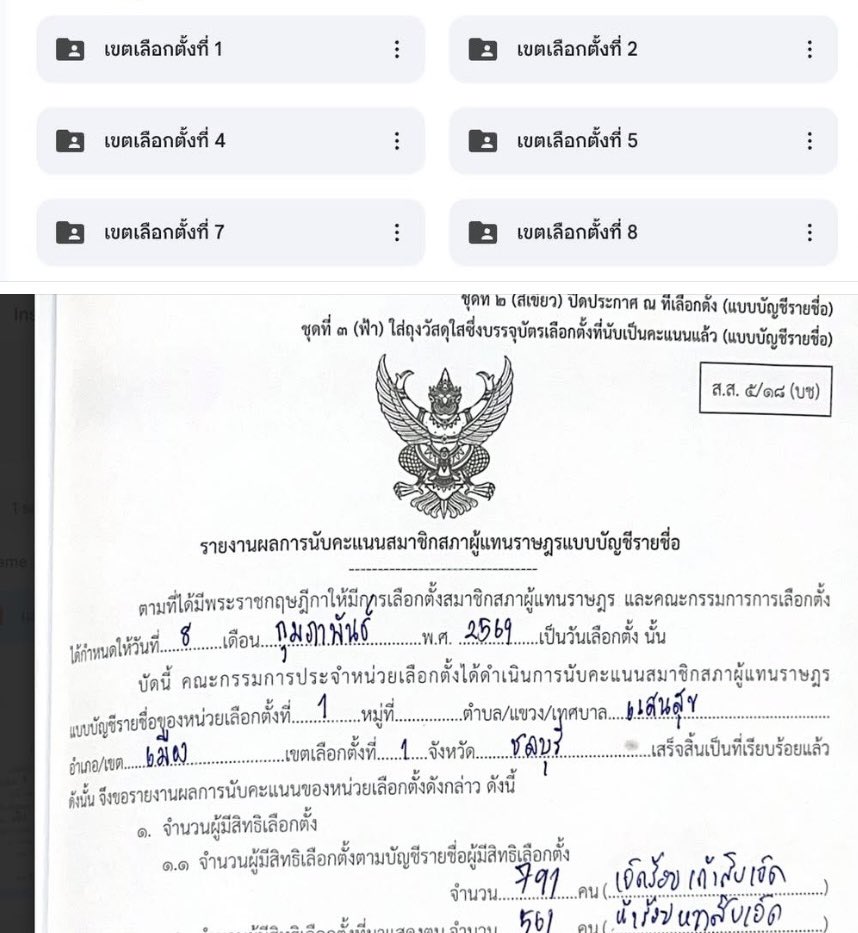 เขตเลือกตั้งที่ 1
เขตเลือกตั้งที่ 2
เขตเลือกตั้งที่ 4
เขตเลือกตั้งที่ 5
เขตเลือกตั้งที่ 7
เขตเลือกตั้งที่ 8
ชุดที่ ๒ (สีเขียว) ปิดประกาศ ณ ที่เลือกตั้ง (แบบบัญชีรายชื่อ)
ชุดที่ ๓ (ฟ้า) ใส่ถุงวัสดุใสซึ่งบรรจุบัตรเลือกตั้งที่นับเป็นคะแนนแล้ว (แบบบัญชีรายชื่อ)
ส.ส. ๕/๑๘ (บช)
รายงานผลการนับคะแนนสมาชิกสภาผู้แทนราษฎรแบบบัญชีรายชื่อ
ตามที่ได้มีพระราชกฤษฎีกาให้มีการเลือกตั้งสมาชิกสภาผู้แทนราษฎร และคณะกรรมการการเลือกตั้ง
ได้กำหนดให้วันที่ 8 เดือน กุมภาพันธ์ พ.ศ. 2569 เป็นวันเลือกตั้ง นั้น
บัดนี้ คณะกรรมการประจำหน่วยเลือกตั้งได้ดำเนินการนับคะแนนสมาชิกสภาผู้แทนราษฎร
แบบบัญชีรายชื่อของหน่วยเลือกตั้งที่ 1 หมู่ที่ ตำบล/แขวง/เทศบาล แสนสุข
อำเภอ/เขต เมือง เขตเลือกตั้งที่ 1 จังหวัด ชลบุรี เสร็จสิ้นเป็นที่เรียบร้อยแล้ว
ดังนั้น จึงขอรายงานผลการนับคะแนนของหน่วยเลือกตั้งดังกล่าว ดังนี้
๑. จำนวนผู้มีสิทธิเลือกตั้ง
๑.๑ จำนวนผู้มีสิทธิเลือกตั้งตามบัญชีรายชื่อผู้มีสิทธิเลือกตั้ง
จำนวน 791 คน (เจ็ดร้อยเก้าสิบเอ็ด)
จำนวน 561 คน (ห้าร้อยหกสิบเอ็ด)